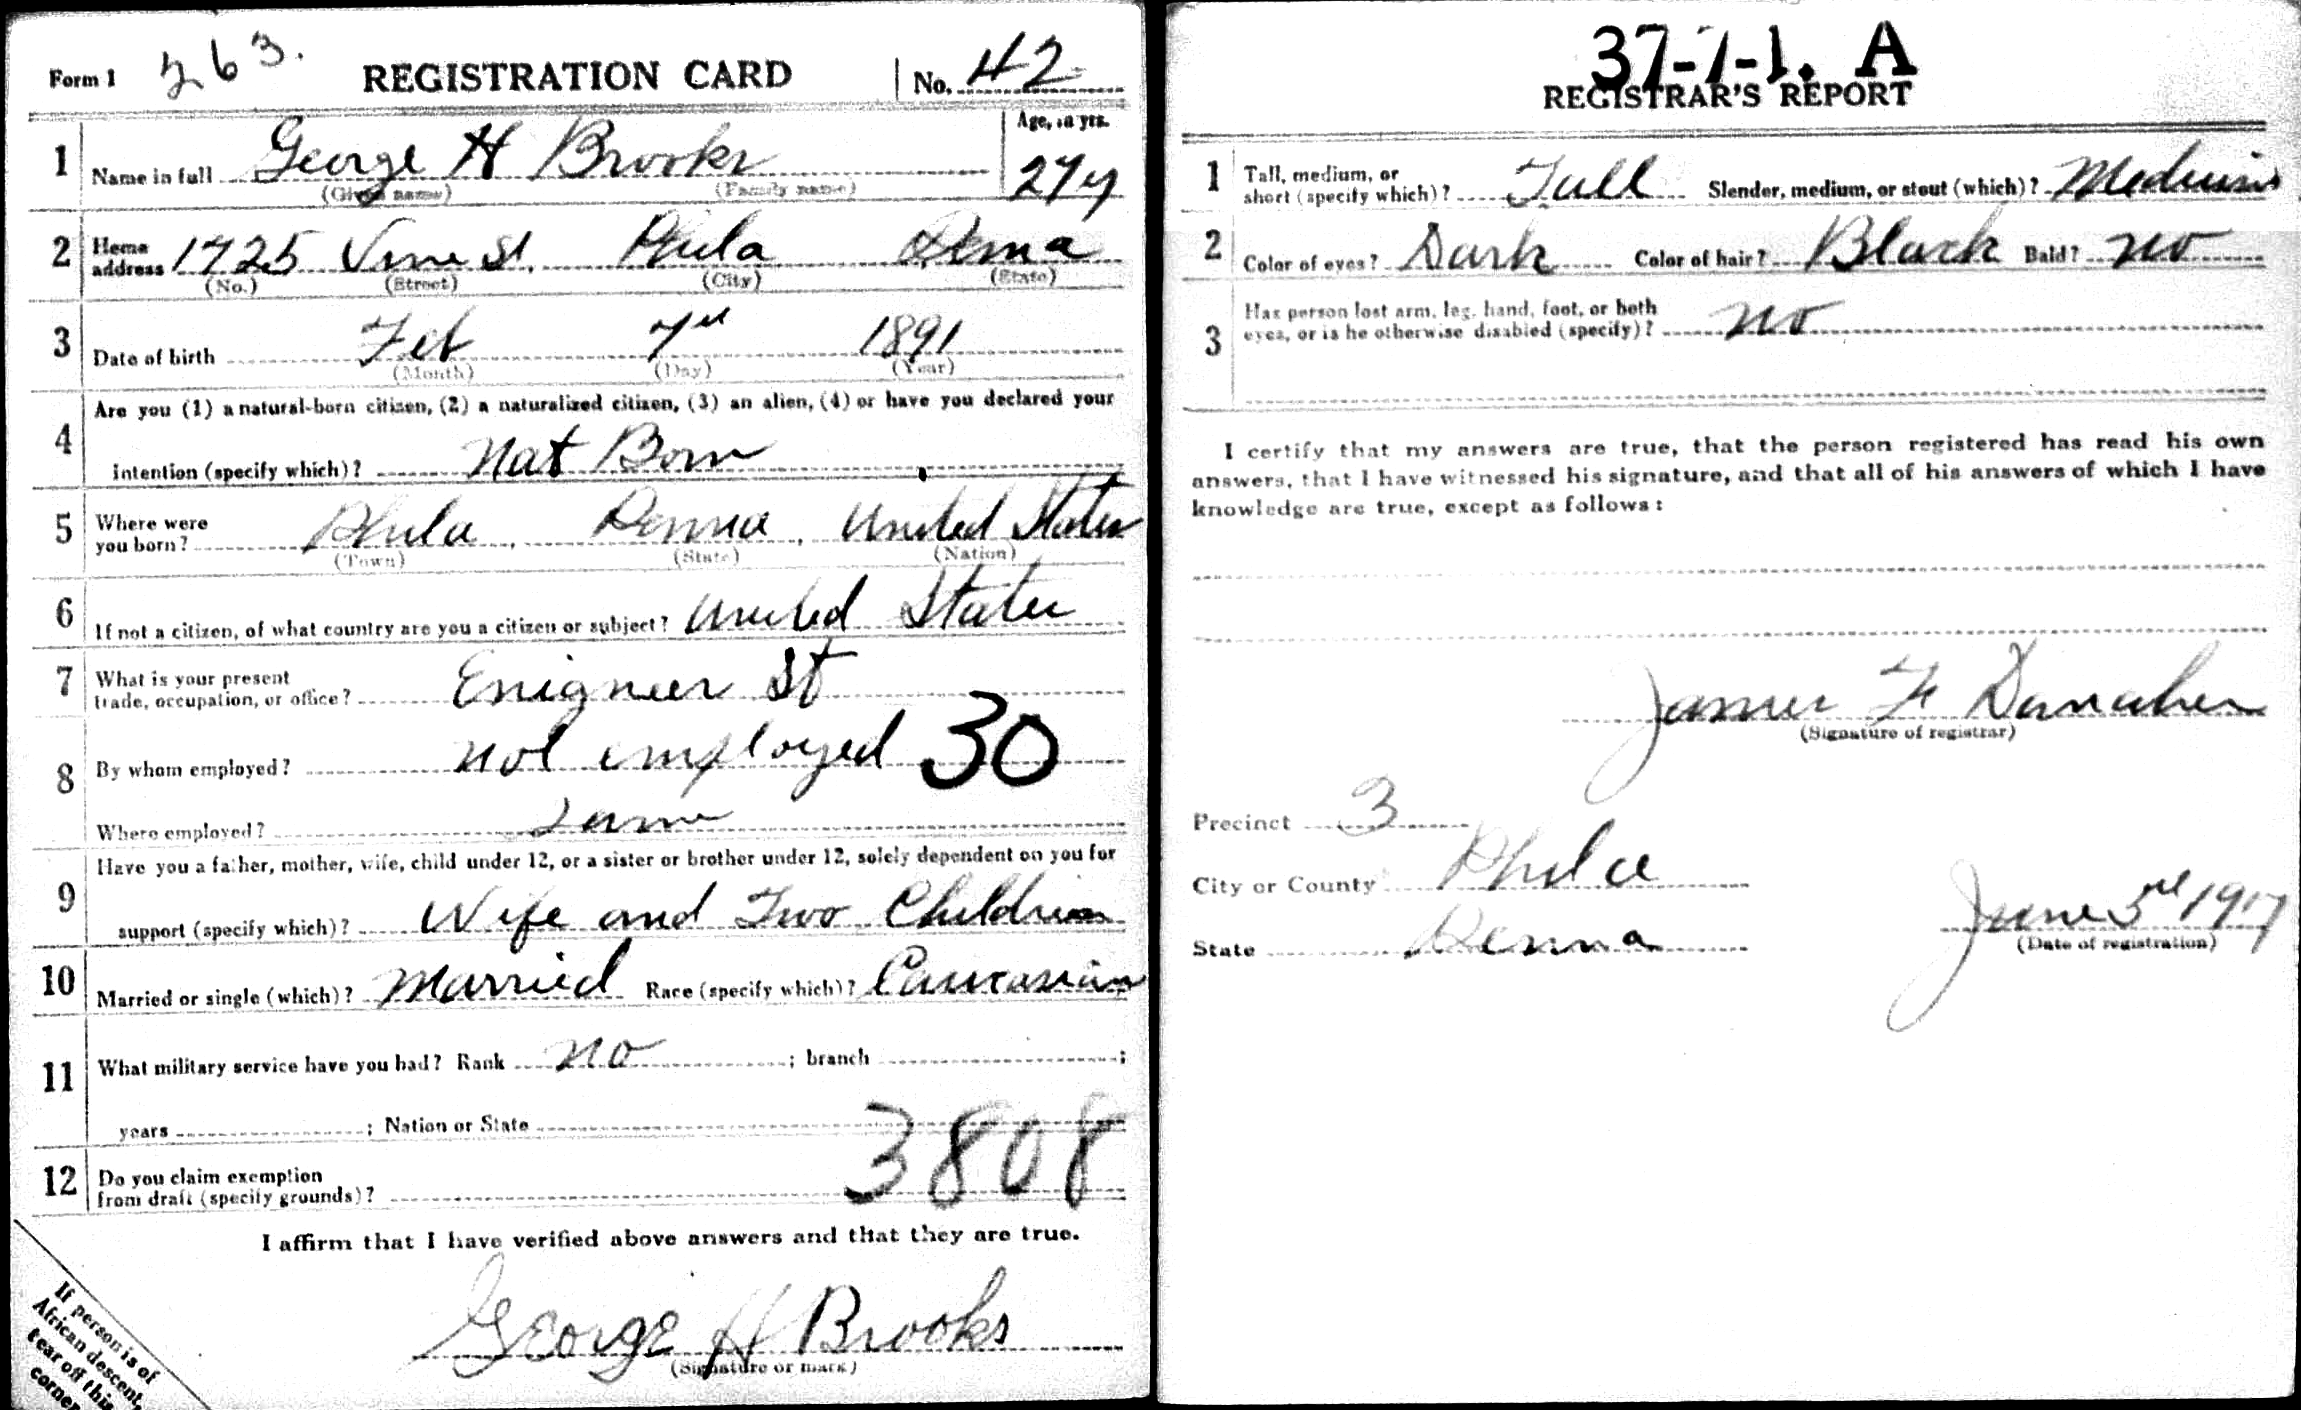 Form 1 263. REGISTRATION CARD No. 42
1 Name in full George H Brooks Age, in yrs. 27y
(Given name) (Family name)
2 Home address 1725 Vine St. Phila Penna
(No.) (Street) (City) (State)
3 Date of birth Feb 7 1891
(Month) (Day) (Year)
4 Are you (1) a natural-born citizen, (2) a naturalized citizen, (3) an alien, (4) or have you declared your
intention (specify which)? Nat Born
5 Where were you born? Phila, Penna, United States
(Town) (State) (Nation)
6 If not a citizen, of what country are you a citizen or subject? United States
7 What is your present trade, occupation, or office? Enigneer St
8 By whom employed? not employed 30
Where employed? Same
9 Have you a father, mother, wife, child under 12, or a sister or brother under 12, solely dependent on you for
support (specify which)? Wife and Two Children
10 Married or single (which)? Married Race (specify which)? Caucasian
11 What military service have you had? Rank no ; branch ;
years ; Nation or State
12 Do you claim exemption from draft (specify grounds)? 3808
I affirm that I have verified above answers and that they are true.
George H Brooks
(Signature or mark)
If person is of
African descent,
tear off this
corner
37-7-1. A
REGISTRAR'S REPORT
1 Tall, medium, or short (specify which)? Tall Slender, medium, or stout (which)? Medium
2 Color of eyes? Dark Color of hair? Black Bald? no
3 Has person lost arm, leg, hand, foot, or both
eyes, or is he otherwise disabled (specify)? no
I certify that my answers are true, that the person registered has read his own
answers, that I have witnessed his signature, and that all of his answers of which I have
knowledge are true, except as follows:
James F Danaher
(Signature of registrar)
Precinct 3
City or County Phila
State Penna
June 5 1917
(Date of registration)